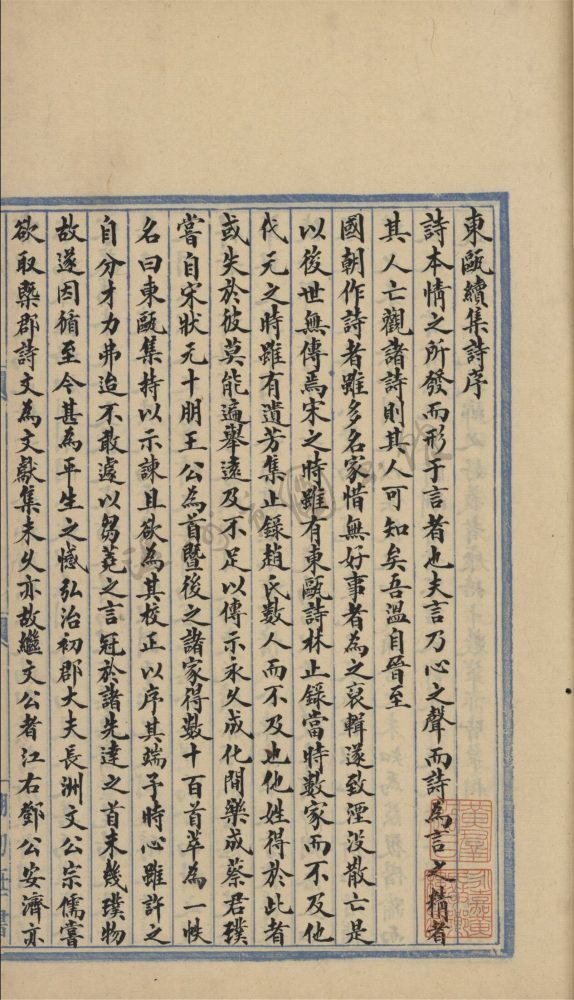 東甌續集詩序
詩本情之所發而形于言者也夫言乃心之聲而詩為言之精者
其人亡觀諸詩則其人可知矣吾溫自晉至
國朝作詩者雖多名家惜無好事者為之裒輯遂致湮没散亡是
以後世無傳焉宋之時雖有東甌詩林止錄當時數家而不及他
代元之時雖有遺芳集止錄趙氏数人而不及也他姓得於此者
或失於彼莫能遍舉遠及不足以傳示永久成化間樂成蔡君璞
嘗自宋狀元十朋王公為首暨後之諸家得数十百首萃為一帙
名曰東甌集持以示諫且欲為其校正以序其端予時心雖許之
自分才力弗迨不敢遽以芻蕘之言冠於諸先達之首未幾璞物
故遂因循至今甚為平生之憾弘治初郡大夫長洲文公宗儒嘗
欲取槩郡詩文為文獻集未久亦故繼文公者江右鄧公安濟亦